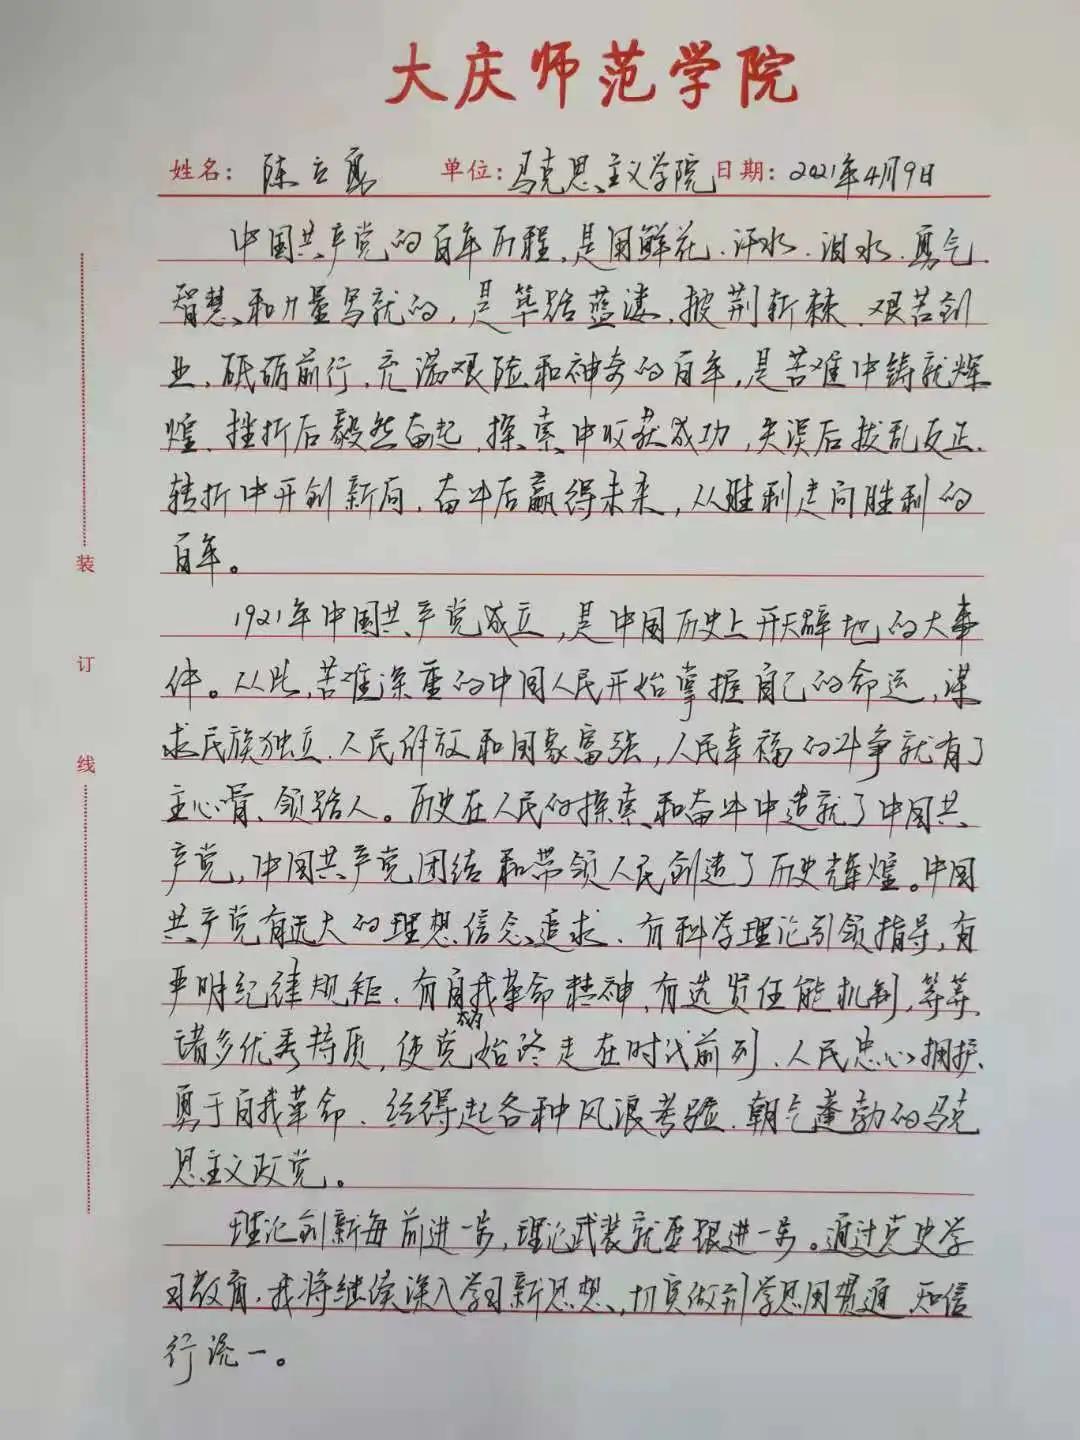 大庆师范学院
姓名：陈立 单位：马克思主义学院 日期：2021年4月9日
中国共产党的百年历程，是用鲜花、汗水、泪水、勇气、
智慧和力量写就的，是筚路蓝缕、披荆斩棘、艰苦创
业、砥砺前行，充满艰险和神奇的百年，是苦难中铸就辉
煌、挫折后毅然奋起、探索中收获成功，失误后拨乱反正、
转折中开创新局、奋斗后赢得未来，从胜利走向胜利的
百年。
1921年中国共产党成立，是中国历史上开天辟地的大事
件。从此，苦难深重的中国人民开始掌握自己的命运，谋
求民族独立、人民解放和国家富强，人民幸福的斗争就有了
主心骨、领路人。历史在人民的探索和奋斗中造就了中国共
产党，中国共产党团结和带领人民创造了历史辉煌。中国
共产党有远大的理想信念追求、有科学理论引领指导，有
严明纪律规矩、有自我革命精神，有选贤任能机制，等等、
诸多优秀特质，使党成为始终走在时代前列、人民忠心拥护、
勇于自我革命、经得起各种风浪考验、朝气蓬勃的马克
思主义政党。
理论创新每前进一步，理论武装就要跟进一步。通过党史学
习教育，我将继续深入学习新思想，切实做到学思用贯通 知信
行统一。
装
订
线